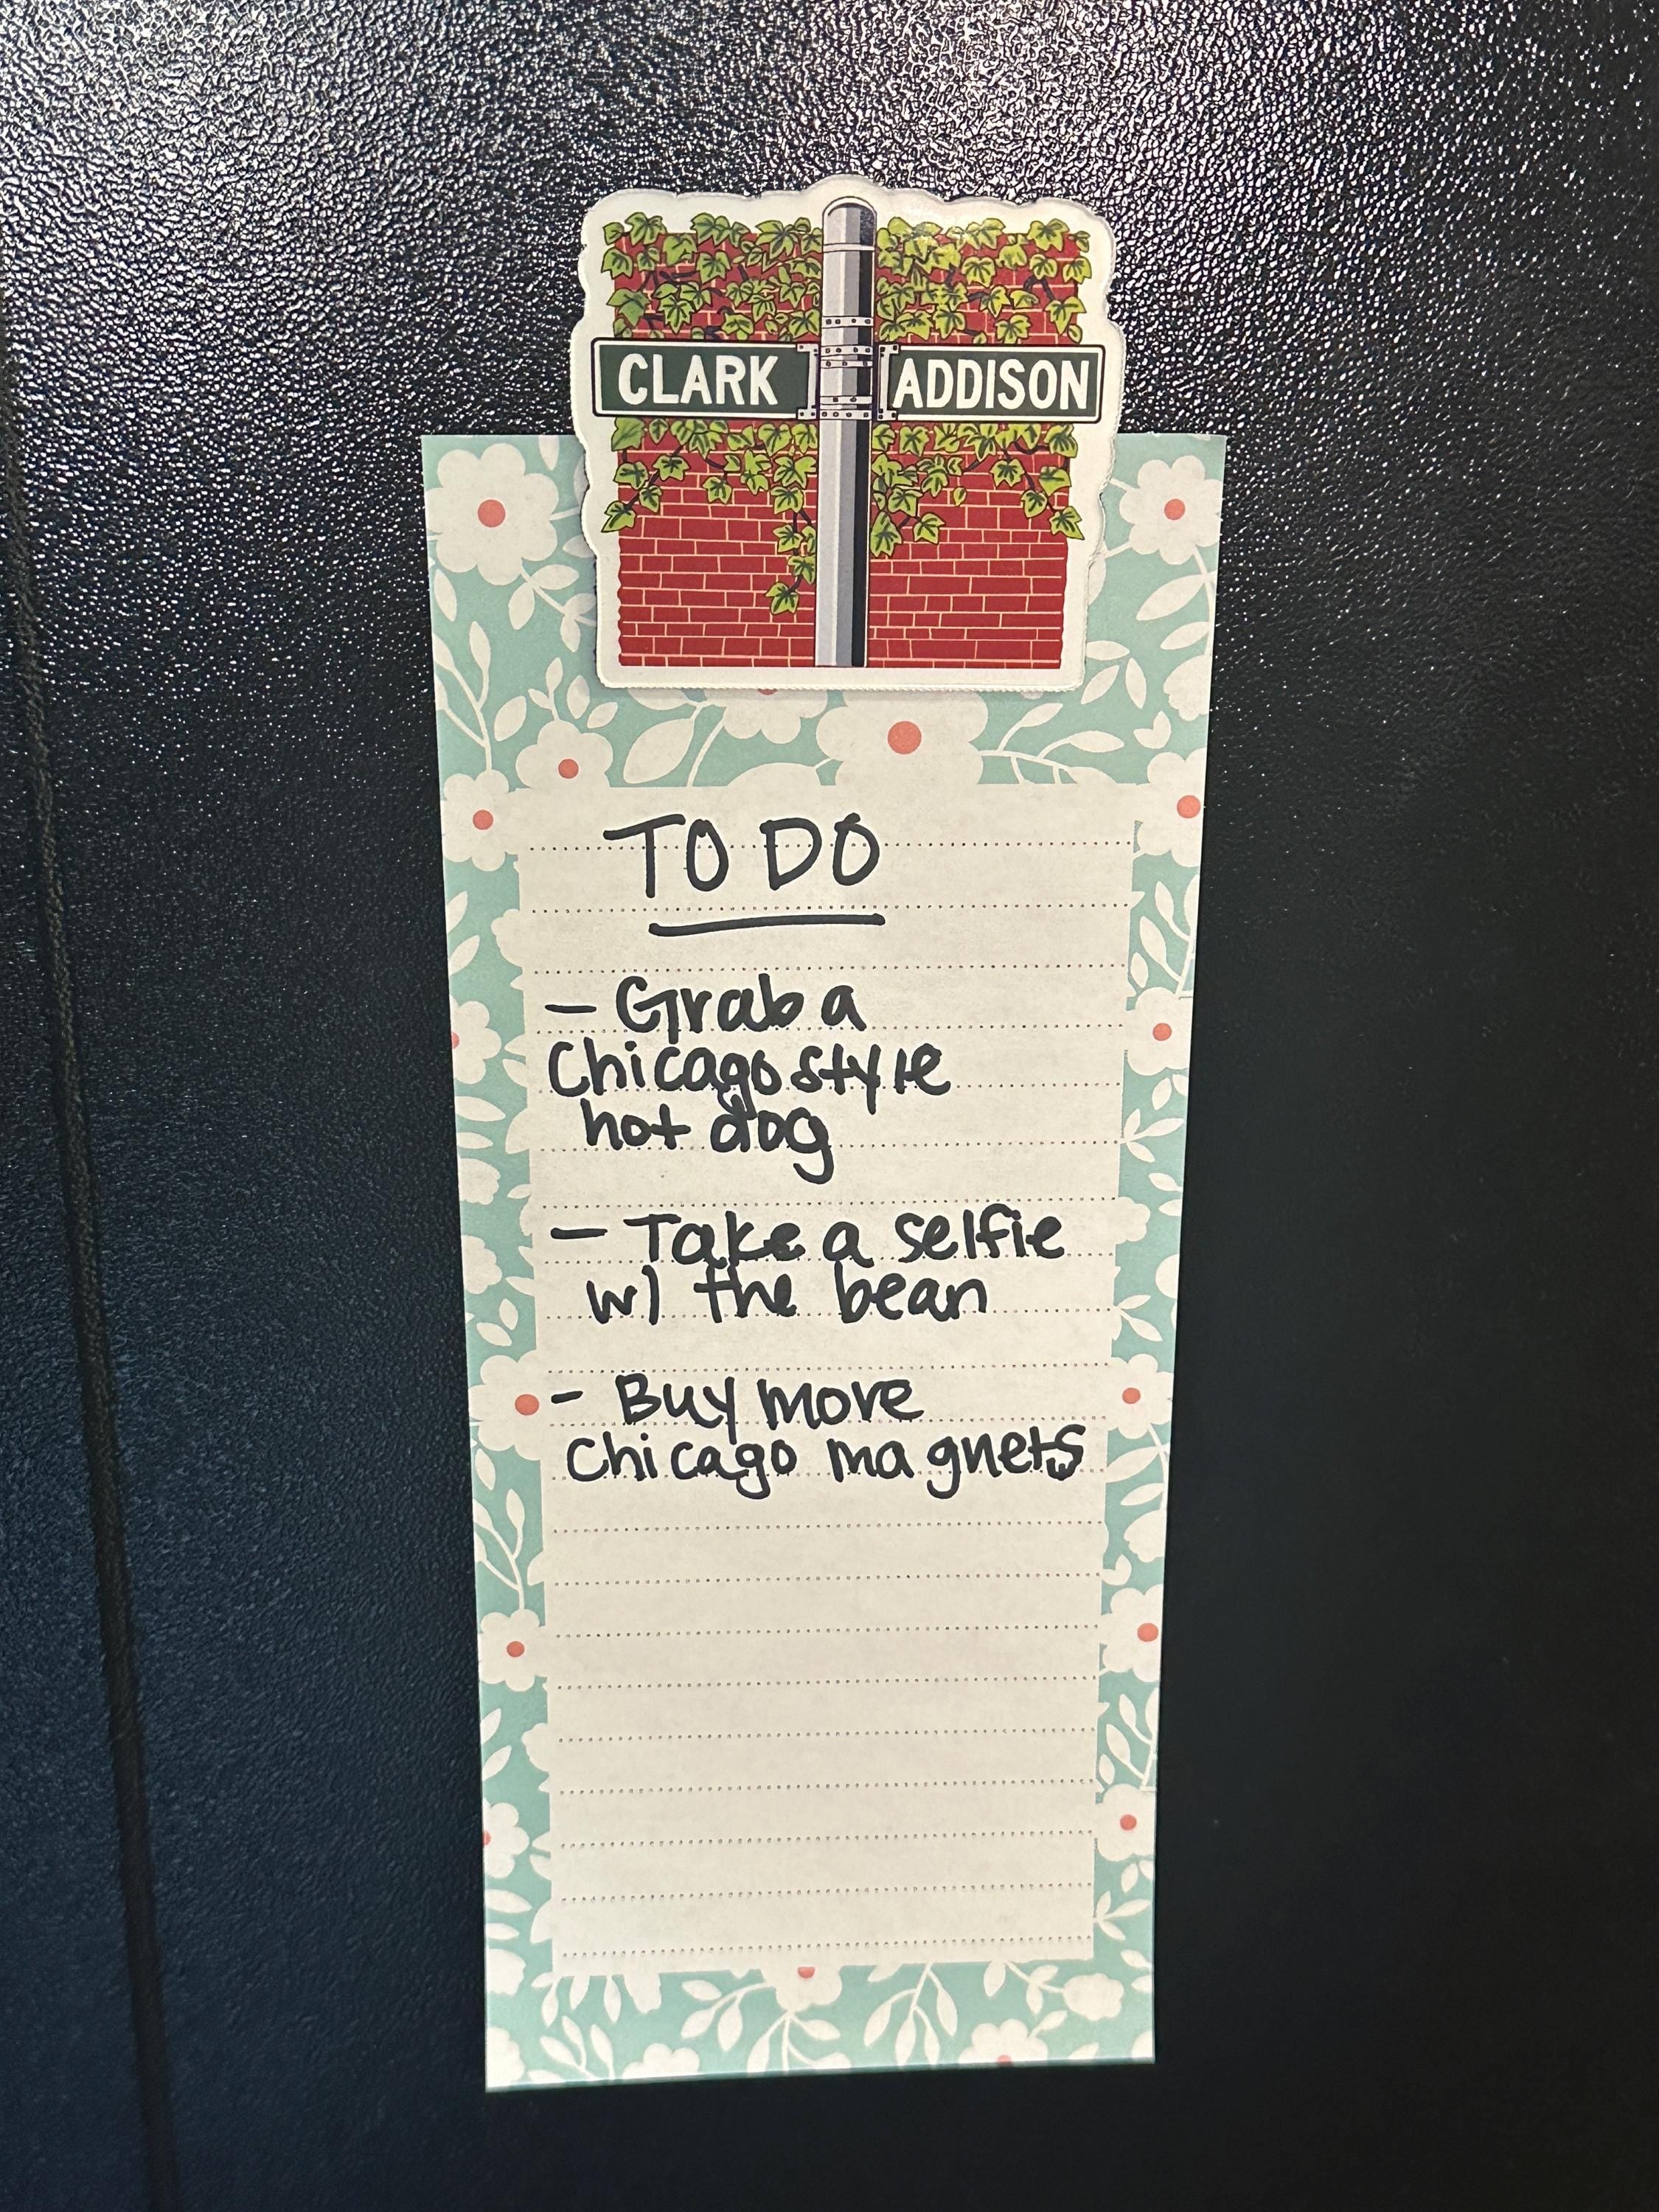 CLARK ADDISON
TO DO
- Grab a
Chicago style
hot dog
- Take a selfie
w/ the bean
- Buy more
Chicago magnets